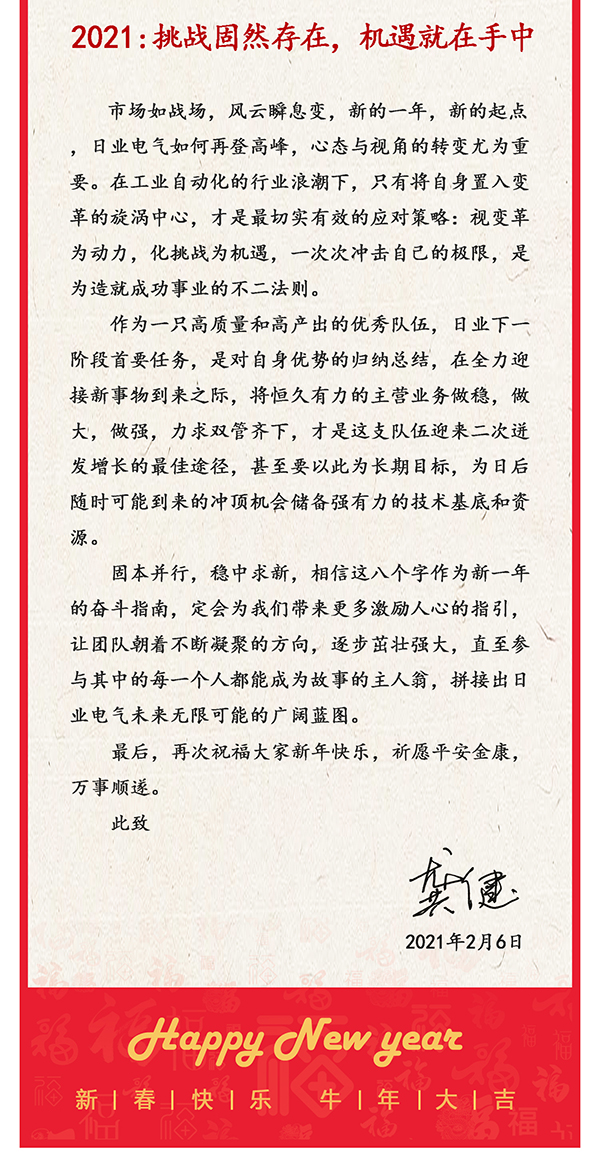 2021:挑战固然存在，机遇就在手中
市场如战场，风云瞬息变，新的一年，新的起点
，日业电气如何再登高峰，心态与视角的转变尤为重
要。在工业自动化的行业浪潮下，只有将自身置入变
革的旋涡中心，才是最切实有效的应对策略：视变革
为动力，化挑战为机遇，一次次冲击自己的极限，是
为造就成功事业的不二法则。
作为一只高质量和高产出的优秀队伍，日业下一
阶段首要任务，是对自身优势的归纳总结，在全力迎
接新事物到来之际，将恒久有力的主营业务做稳，做
大，做强，力求双管齐下，才是这支队伍迎来二次迸
发增长的最佳途径，甚至要以此为长期目标，为日后
随时可能到来的冲顶机会储备强有力的技术基底和资
源。
固本并行，稳中求新，相信这八个字作为新一年
的奋斗指南，定会为我们带来更多激励人心的指引，
让团队朝着不断凝聚的方向，逐步茁壮强大，直至参
与其中的每一个人都能成为故事的主人翁，拼接出日
业电气未来无限可能的广阔蓝图。
最后，再次祝福大家新年快乐，祈愿平安金康，
万事顺遂。
此致
龚健
2021年2月6日
Happy New year
新|春|快|乐 牛|年|大|吉